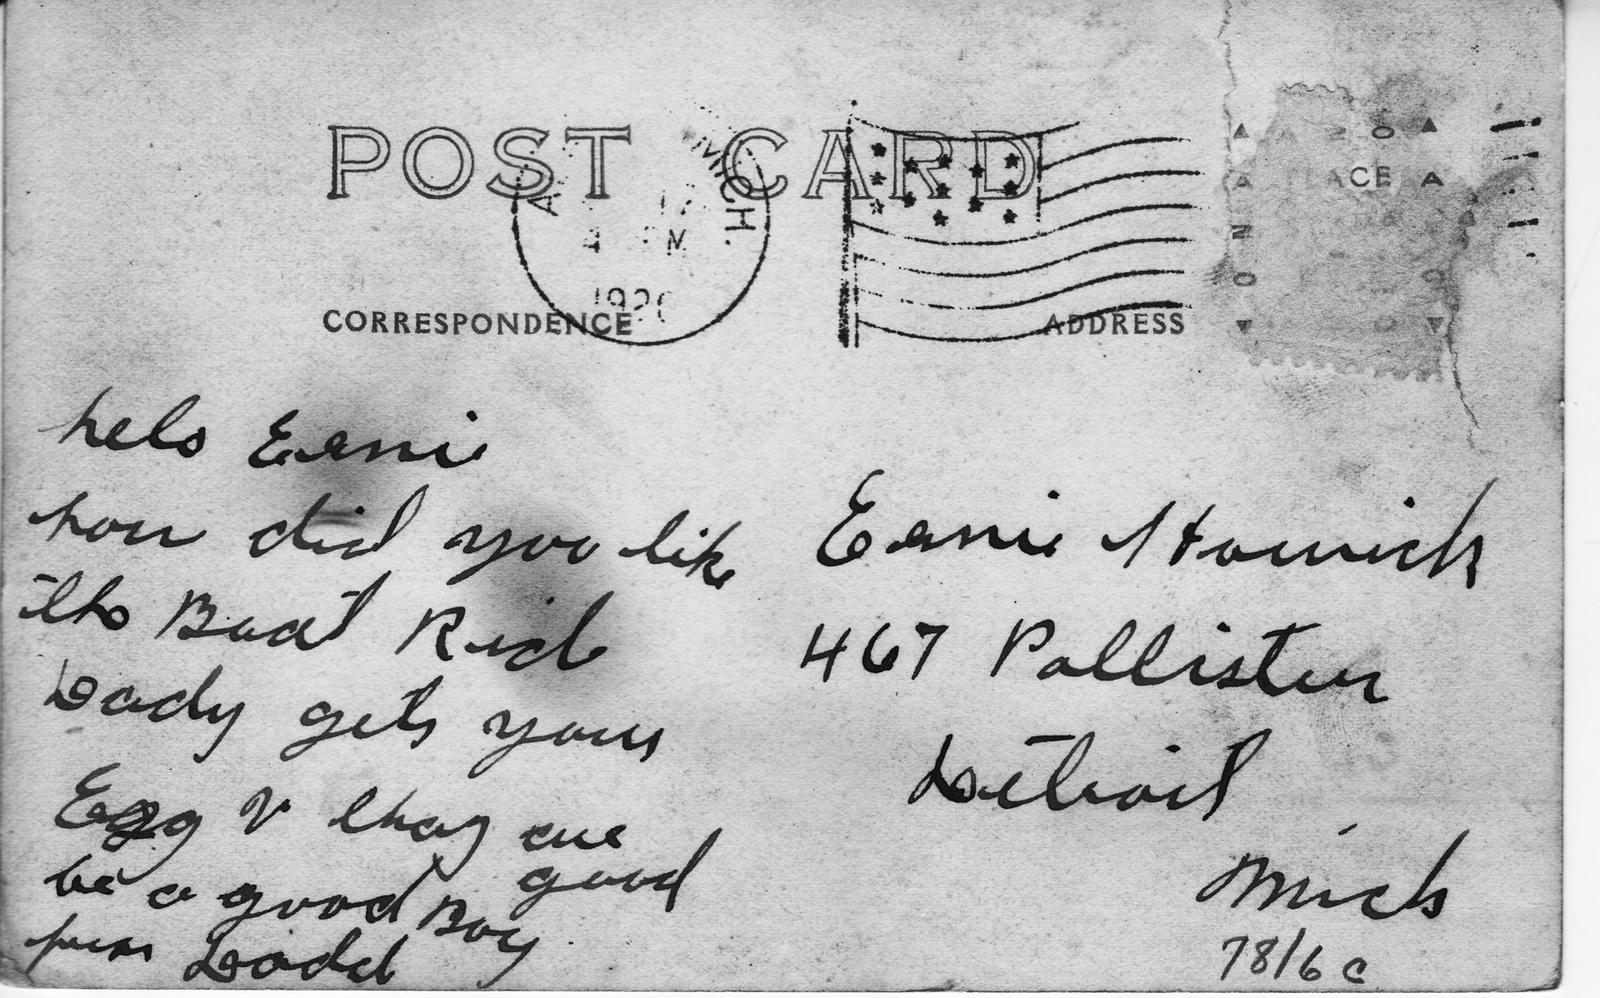 POST CARD
MICH.
M
192
CORRESPONDENCE
ADDRESS
CE
helo Eanie
how did you like
the Boat Rid
Dady gets yours
Egg & thay are
good
be a good Boy
from Dadd
Eanie Howich
467 Pallister
Detroit
Mich
78/6 c